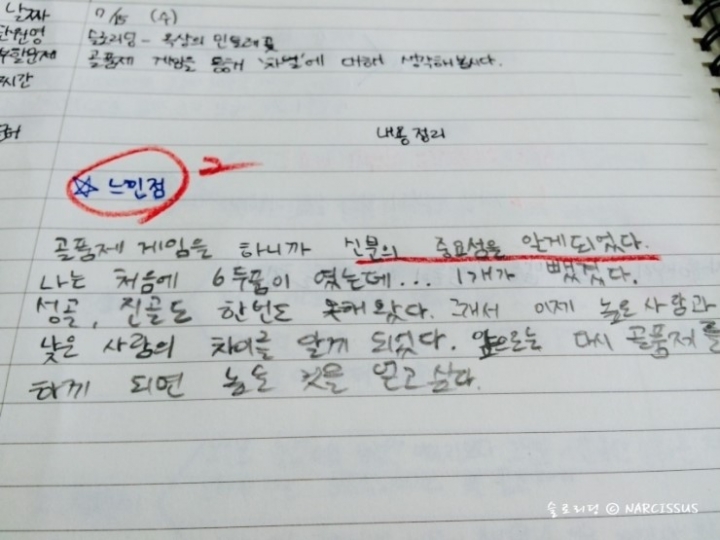 날짜 7/15 (수)
단원명 슬로리딩 - 옥상의 민들레꽃
부할문제 골품제 게임을 통해 '차별'에 대해 생각해봅시다.
시간
내용정리
☆ 느인점 2
골품제 게임을 하니까 신분의 중요성을 알게되었다.
나는 처음에 6두품이 였는데... 1개가 뺐겼다.
성골, 진골도 한번도 못해 왔다. 그래서 이제 높은 사람과
낮은 사람의 차이를 알게 되었다. 앞으로는 다시 골품제를
하게 되면 높은 것을 얻고 싶다.
슬로리딩 © NARCISSUS